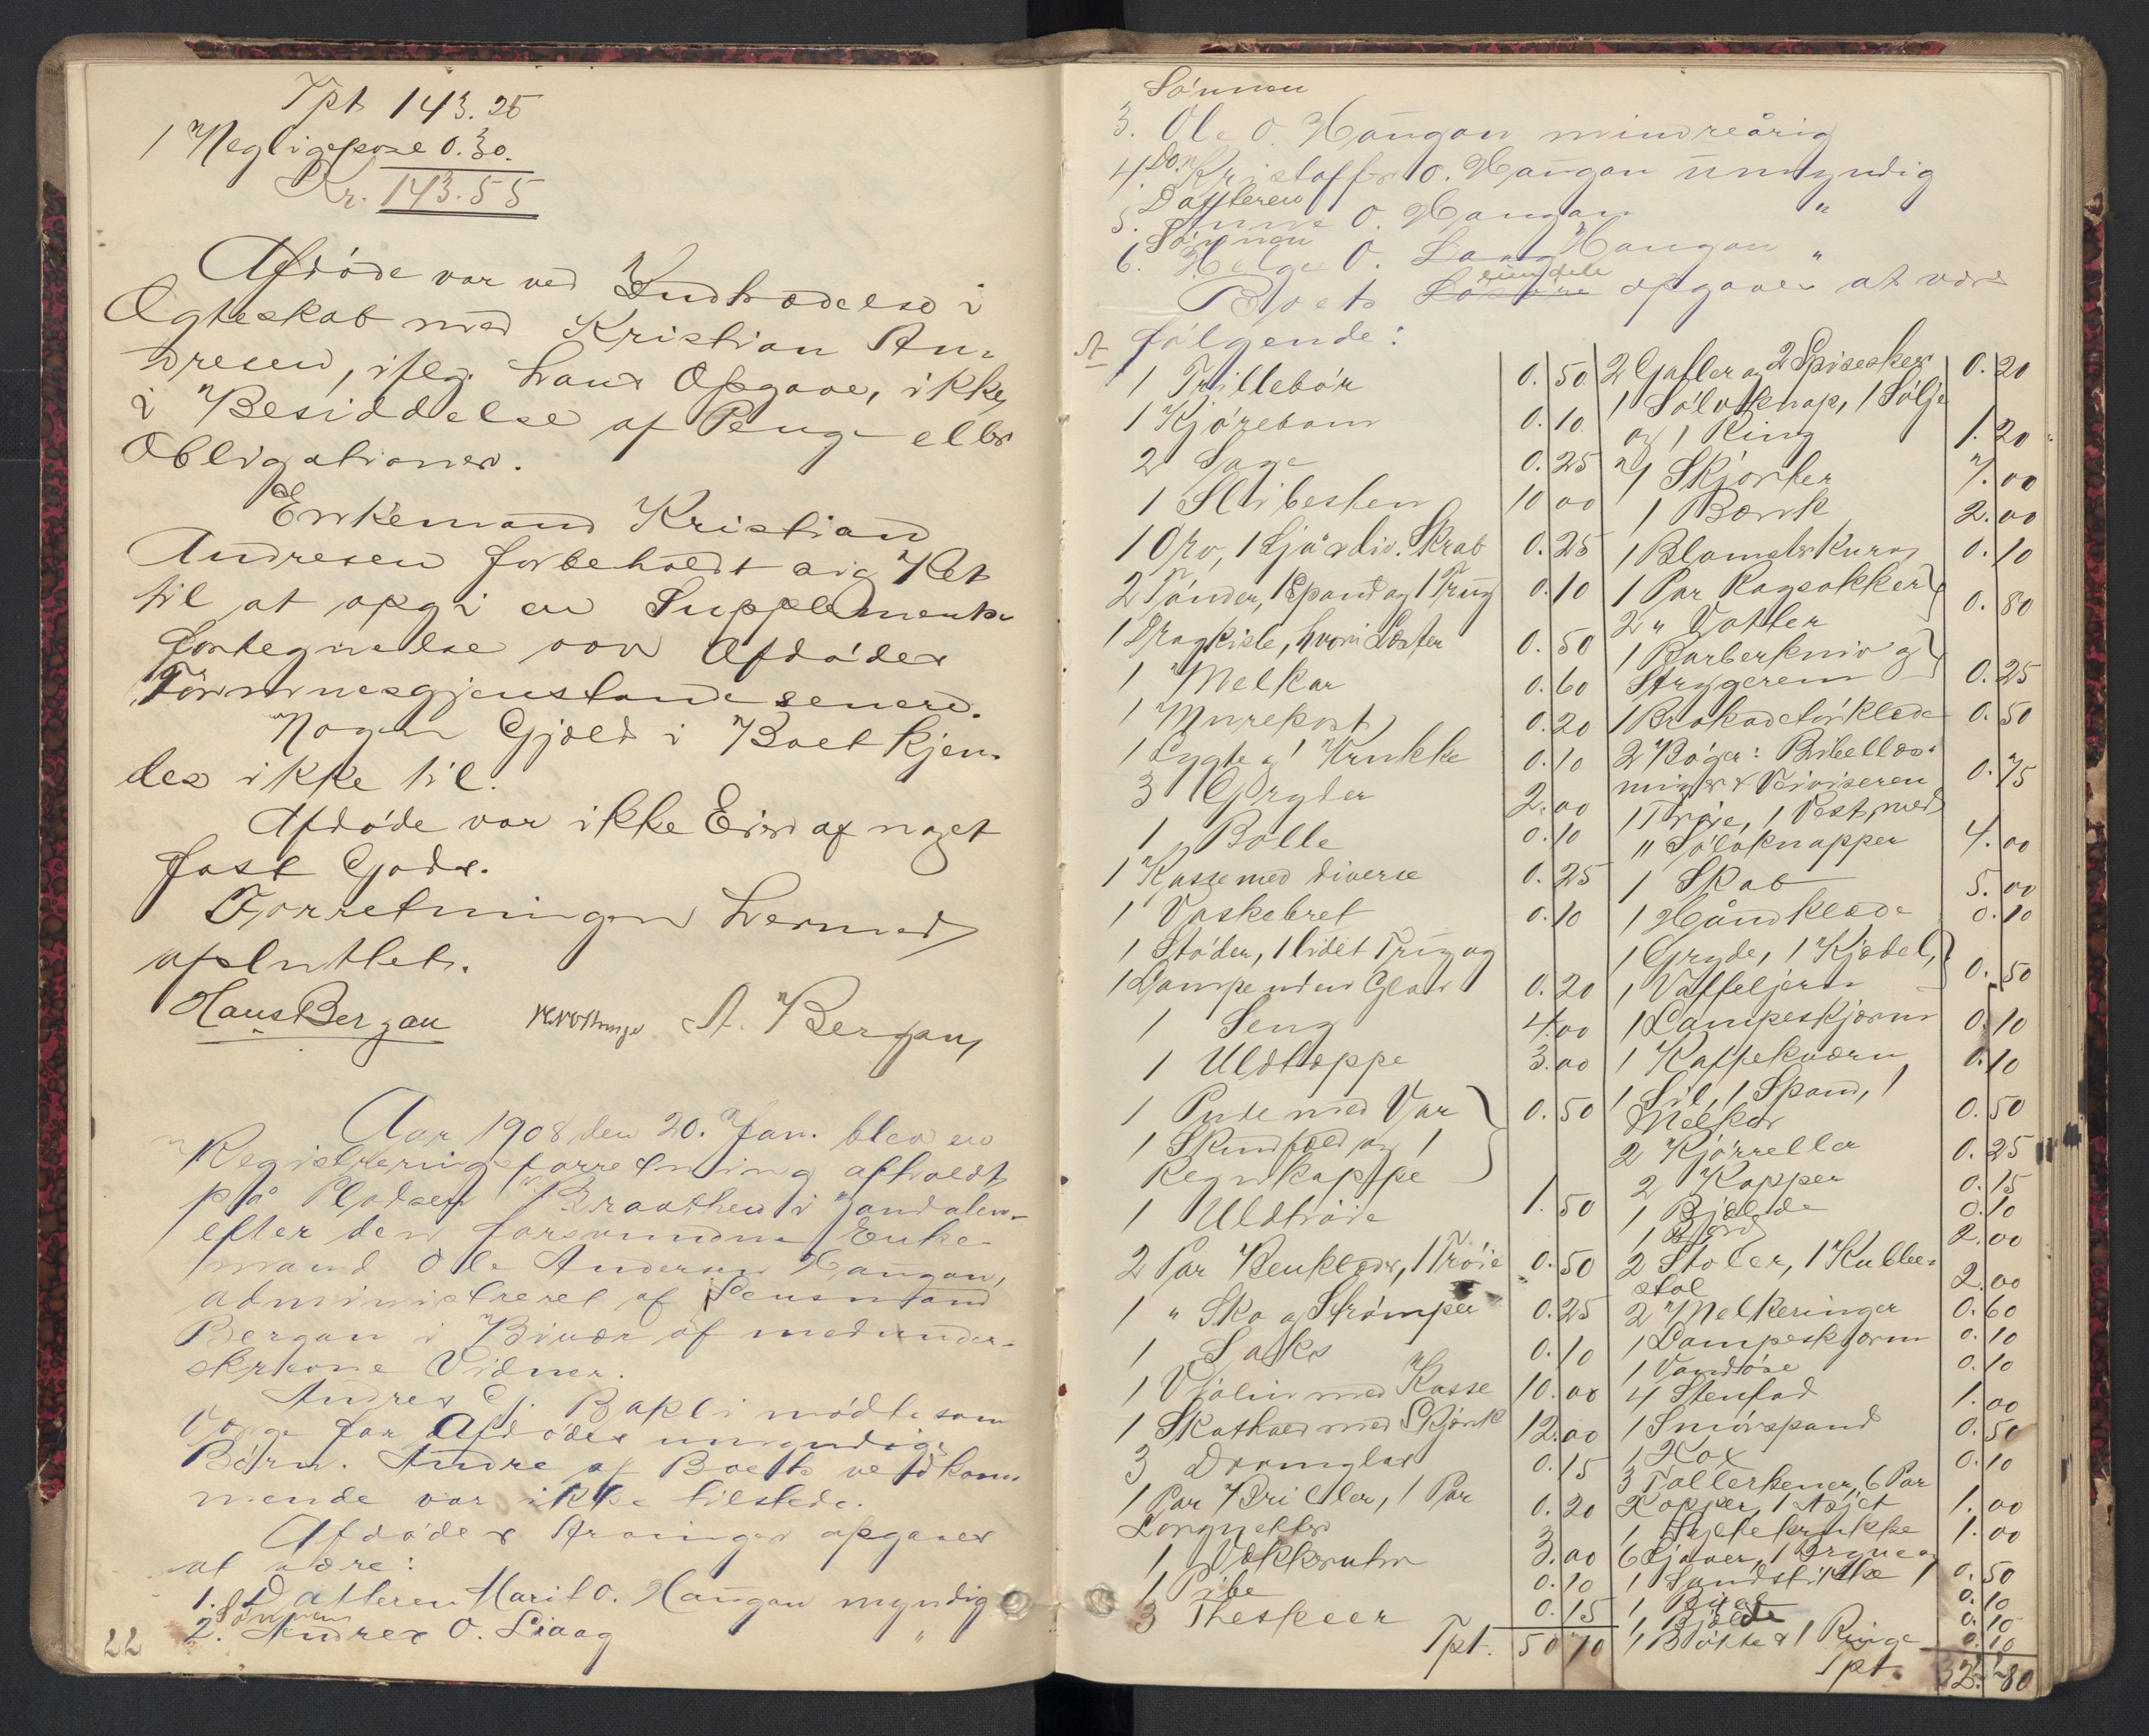 Tpt 143.25
1 Negligepose 0.30.
Kr. 143.55
Afdøde var ved Indtrædelse i
Ægteskab med Kristian An-
dresen, iflg. hans Opgave, ikke
i Besiddelse af Penge eller
Obligationer.
Enkemand Kristian
Andresen forbeholdt sig Ret
til at opgi en Supplements-
fortegnelse over Afdødes
senere.
Nogen Gjæld i Boet kjen-
des ikke til.
Afdøde var ikke Eier af noget
fast Gods.
Forretningen hermed
afsluttet.
Hans Bergan A. Bergan
Aar 1908 den 20. Jan. blev en
Registreringsforretning afholdt
på Pladsen Braathen i
efter den forsvundne Enke-
mand Ole Andersen Haugan,
administreret af Lensmand
Bergan i Bivær af medunder-
skrevne Vidner.
Andres G. Bakli mødte som
Værge for Afdødes umyndige
Børn. Andre af Boets vedkom-
mende var ikke tilstede.
Afdødes Arvinger opgaves
at være:
1. Datteren Marit O. Haugan myndig
Sønnen
2. Andres O. Liaag "
22
Sønnen
3. Ole O. Haugan mindreårig
Do.
4. Kristoffer O. Haugan umyndig
Datteren
5. Anne O. Haugan "
Sønnen
6. Helge O. Haugan "
Boets Løsøre opgaves at være
A følgende:
1 Trillebør 0.50
1 Kjørebom 0.10
2 Sage 0.25
1 Slibesten 10 00
1 Øre, 1 Ljå & div. Skrab 0.25
2 Tønder, 1 Spand og 1 Trug 0.10
1 Dragkiste, hvori Læster 0.50
1 Melkar 0.60
1 Murekost 0.20
1 Lygte og 1 Krukke 0.10
3 Gryder 2.00
1 Bolle 0.10
1 Kasse med diverse 0.25
1 Vaskebret 0.10
1 Støder, 1 lidet Trug og
1 Lampe uden Glas 0.20
1 Seng 4.00
1 Uldteppe 3.00
1 Pude med Var 0.50
1 Skindfæld og 1
Regnkappe
1 Uldtrøie 1.50
2 Par Benklæder, 1 Trøie 0.50
1 " Sko og Strømper 0.25
1 Saks 0.10
1 Violin med Kasse 10.00
1 Skathol med Skjænk 12.00
3 0.15
1 Par Briller, 1 Par 0.20
Lorgnetter
1 Vækkerur 3.00
1 Pibe 0.10
3 Theskeer 0.15
Tpt. 50 70
2 Gafler og 2 Spiseskeer 0.20
1 Sølvknap, 1 Sølje
og 1 Ring 1.20
7 Skjorter 7.00
1 Bænk 2.00
1 Blomsterkurv 0.10
1 Par Ragsokker
2 " Votter 0.80
1 Barberkniv og
Strygerem 0.25
1 Brokadetørklæde 0.50
2 Bøger: Bibellæs-
ninger & Veiviseren 0.75
1 Trøie, 1 Vest med
11 Sølvknapper 4.00
1 Skab 5.00
1 Håndklæde 0.10
1 Gryde, 1 Kjedel,
1 Vaffeljern 0.50
1 Lampeskjærm 0.10
1 Kaffekværn 0.10
1 Sil, 1 Spand, 1
Melkar 0.50
2 Kjørreller 0.25
2 Kopper 0.15
1 Bjælde 0.10
1 Bord 2.00
2 Stoler, 1 Kubbe-
stol 2.00
2 Melkeringer 0.60
1 Lampeskjærm 0.10
1 Vandøse 0.10
4 Stenfad 1.00
1 Smørspand 0.50
1 0.10
3 Tallerkener, 6 Par
Kopper, 1 Asjet 1.00
1 Syltekrukke 1.00
6 Ljåer, 1 Bryne og
1 0.50
1 0.10
1 Bjælde 0.10
1 Bøtte & 1 Ringe 0.10
Tpt. 32.80